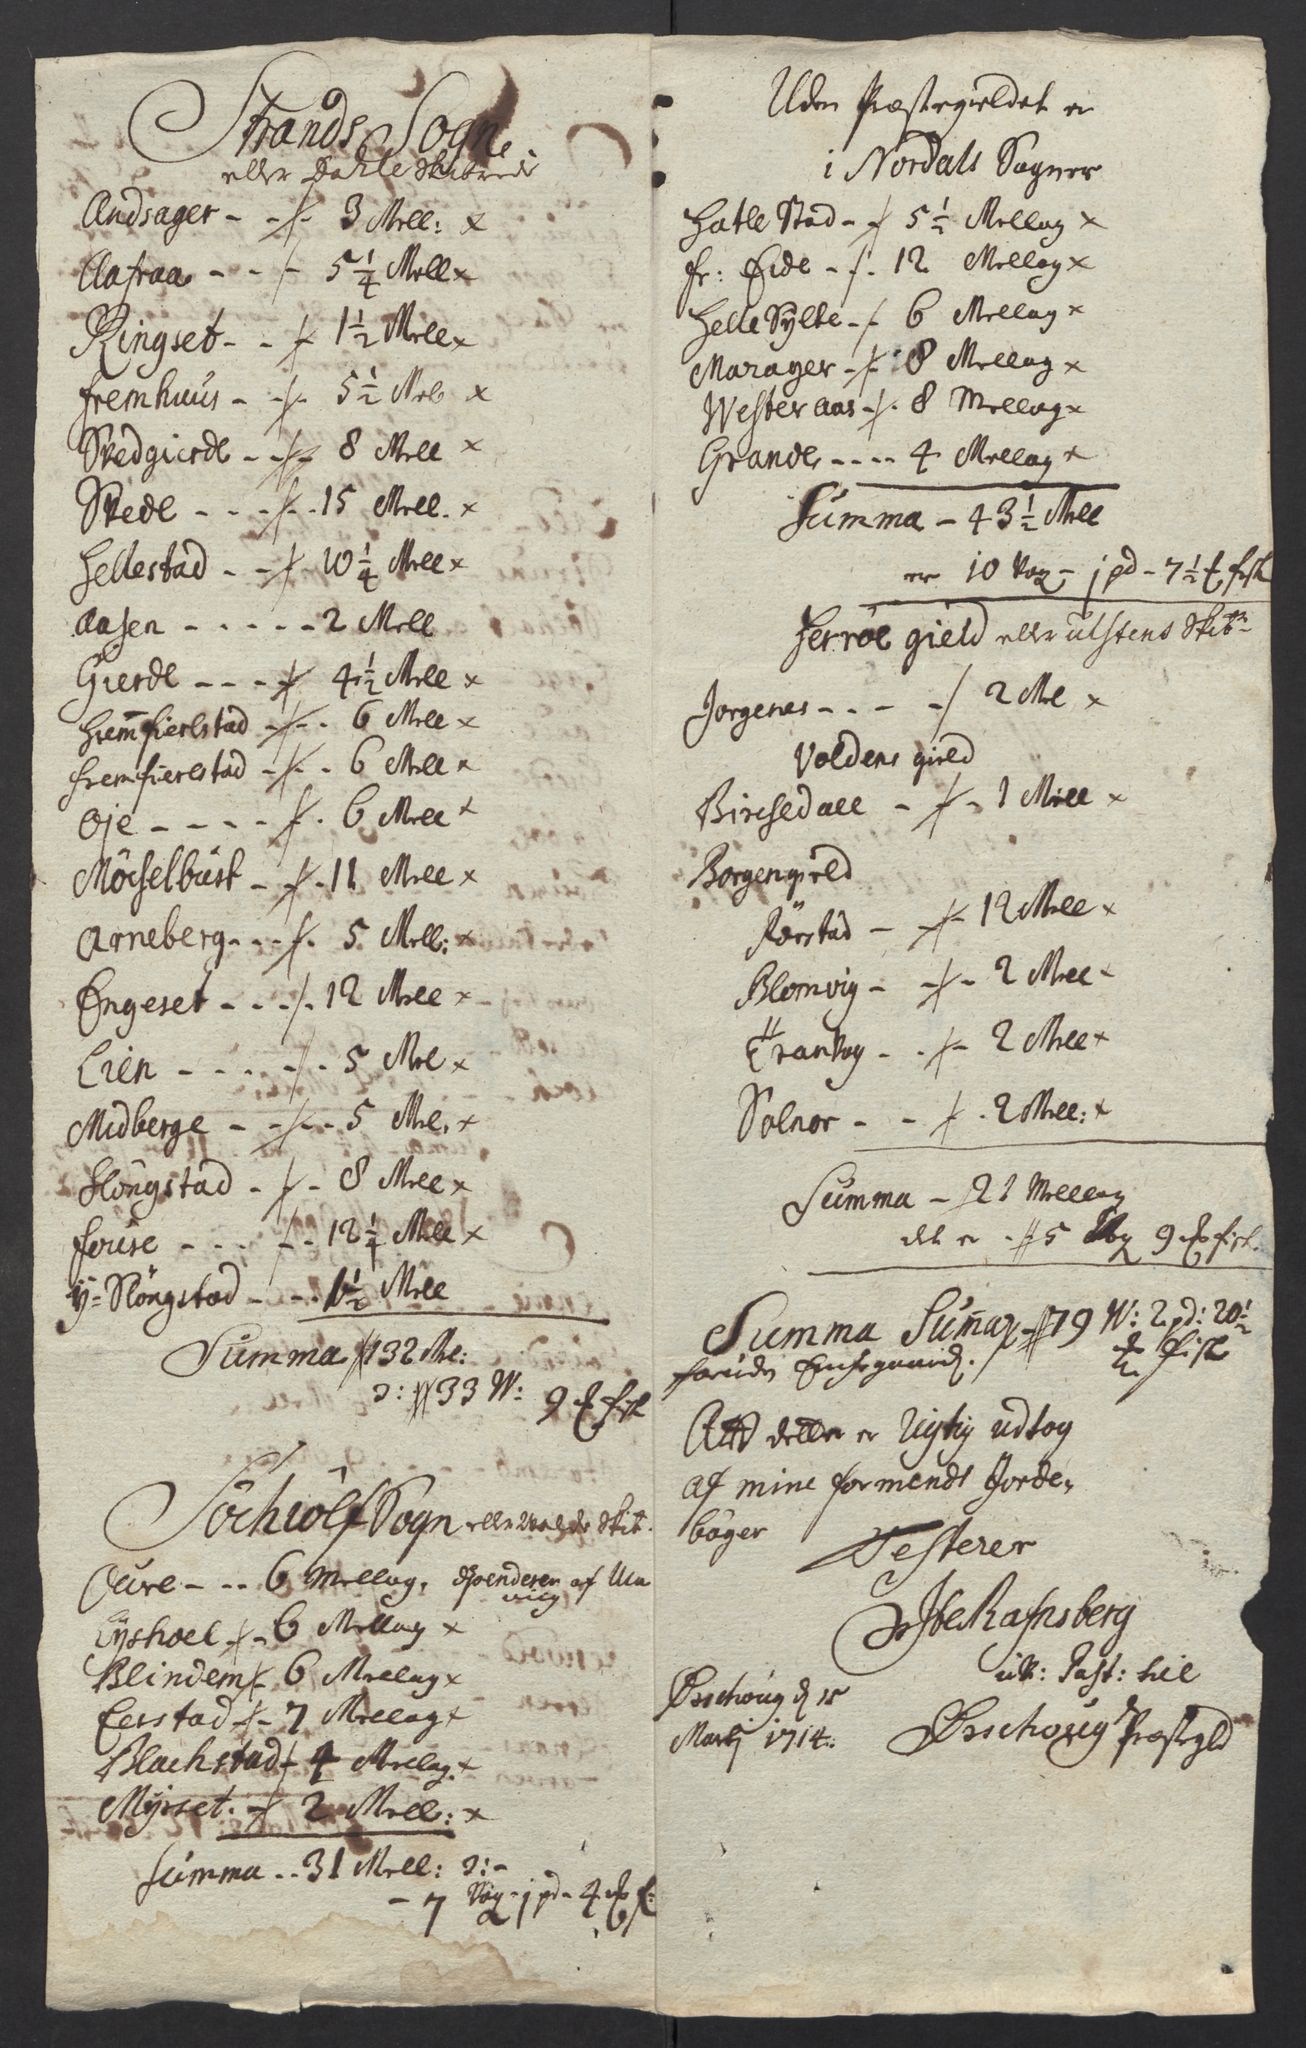 Strands Sogn
eller Dahle Skibrede
Andsager - - 3 Mell: x
Aafraa - - - 5 1/4 Mell x
Ringset - - 1 1/2 Mell x
fremhuus - - 5 1/2 Mel x
Skedgierde - - 8 Mell x
Skede - - - - 15 Mell. x
Hellestad - - 10 1/4 Mell x
Aasen - - - - - 2 Mell
Gierde - - - 4 1/2 Mell x
Hremfierlstad - - 6 Mell x
fremfierelstad - - 6 Mell x
Oje - - - - - 6 Mell x
Möchelbust - - 11 Mell x
Arneberg - - - 5 Mell: x
Engeset - - - 12 Mell x
Lien - - - - - 5 Mel x
Midberge - - - 5 Mel. x
Slöngstad - - 8 Mell x
fouse - - - - - 12 1/4 Mell x
Y= Slöngstad - - - 1 1/2 Mell
Summa 132 Me:
ɔ: 33 W: 9 ℔ fisk
Söchwölf Sogn eller Skib.
Oure - - - 6 Mellag, af
Lyshoel - 6 Mellag x
Blindem - 6 Mellag x
Eerstad - 7 Mellag x
Blachstad - 4 Mellag x
Myrset. - 2 Mell: x
Summa - - 31 Mell: ɔ: -
- 7 Vog - j pd - 4 ℔ f:
Uden Præstegieldet er
i Nordals Sogner
Hatle Stad - - 5 1/2 Mellag x
fr: Eide - - 12 Mellag x
Helle Sylte - - 6 Mellag x
Marager - - 8 Mellag x
Westeraas - - 8 Mellag x
Grande - - - - 4 Mellag x
Summa - 43 1/2 Mell
er 10 Vog - j pd - 7 1/2 ℔ fisk
Herröe gield eller ulstens Skib:
Jorgenes - - - - 2 Mel x
Voldens gield
Birchedall - - - 1 Mell x
Borgengield
Rörstad - - 12 Mell x
Blomvig - - - 2 Mell x
- - - 2 Mell x
Solnor - - - 2 Mell: x
Summa - 21 Mellag
det er - 5 Vog 9 ℔ fisk.
Summa Summar 79 W: 2 pd: 20 1/2
foruden
℔ fisk
Att dette er Rigtig udtog
af mine formends Jorde,
böger
Testerer
Ibe Rafnsberg
Past: til
Ørschoug Præstegld
Ørschoug d 15
Martj 1714.